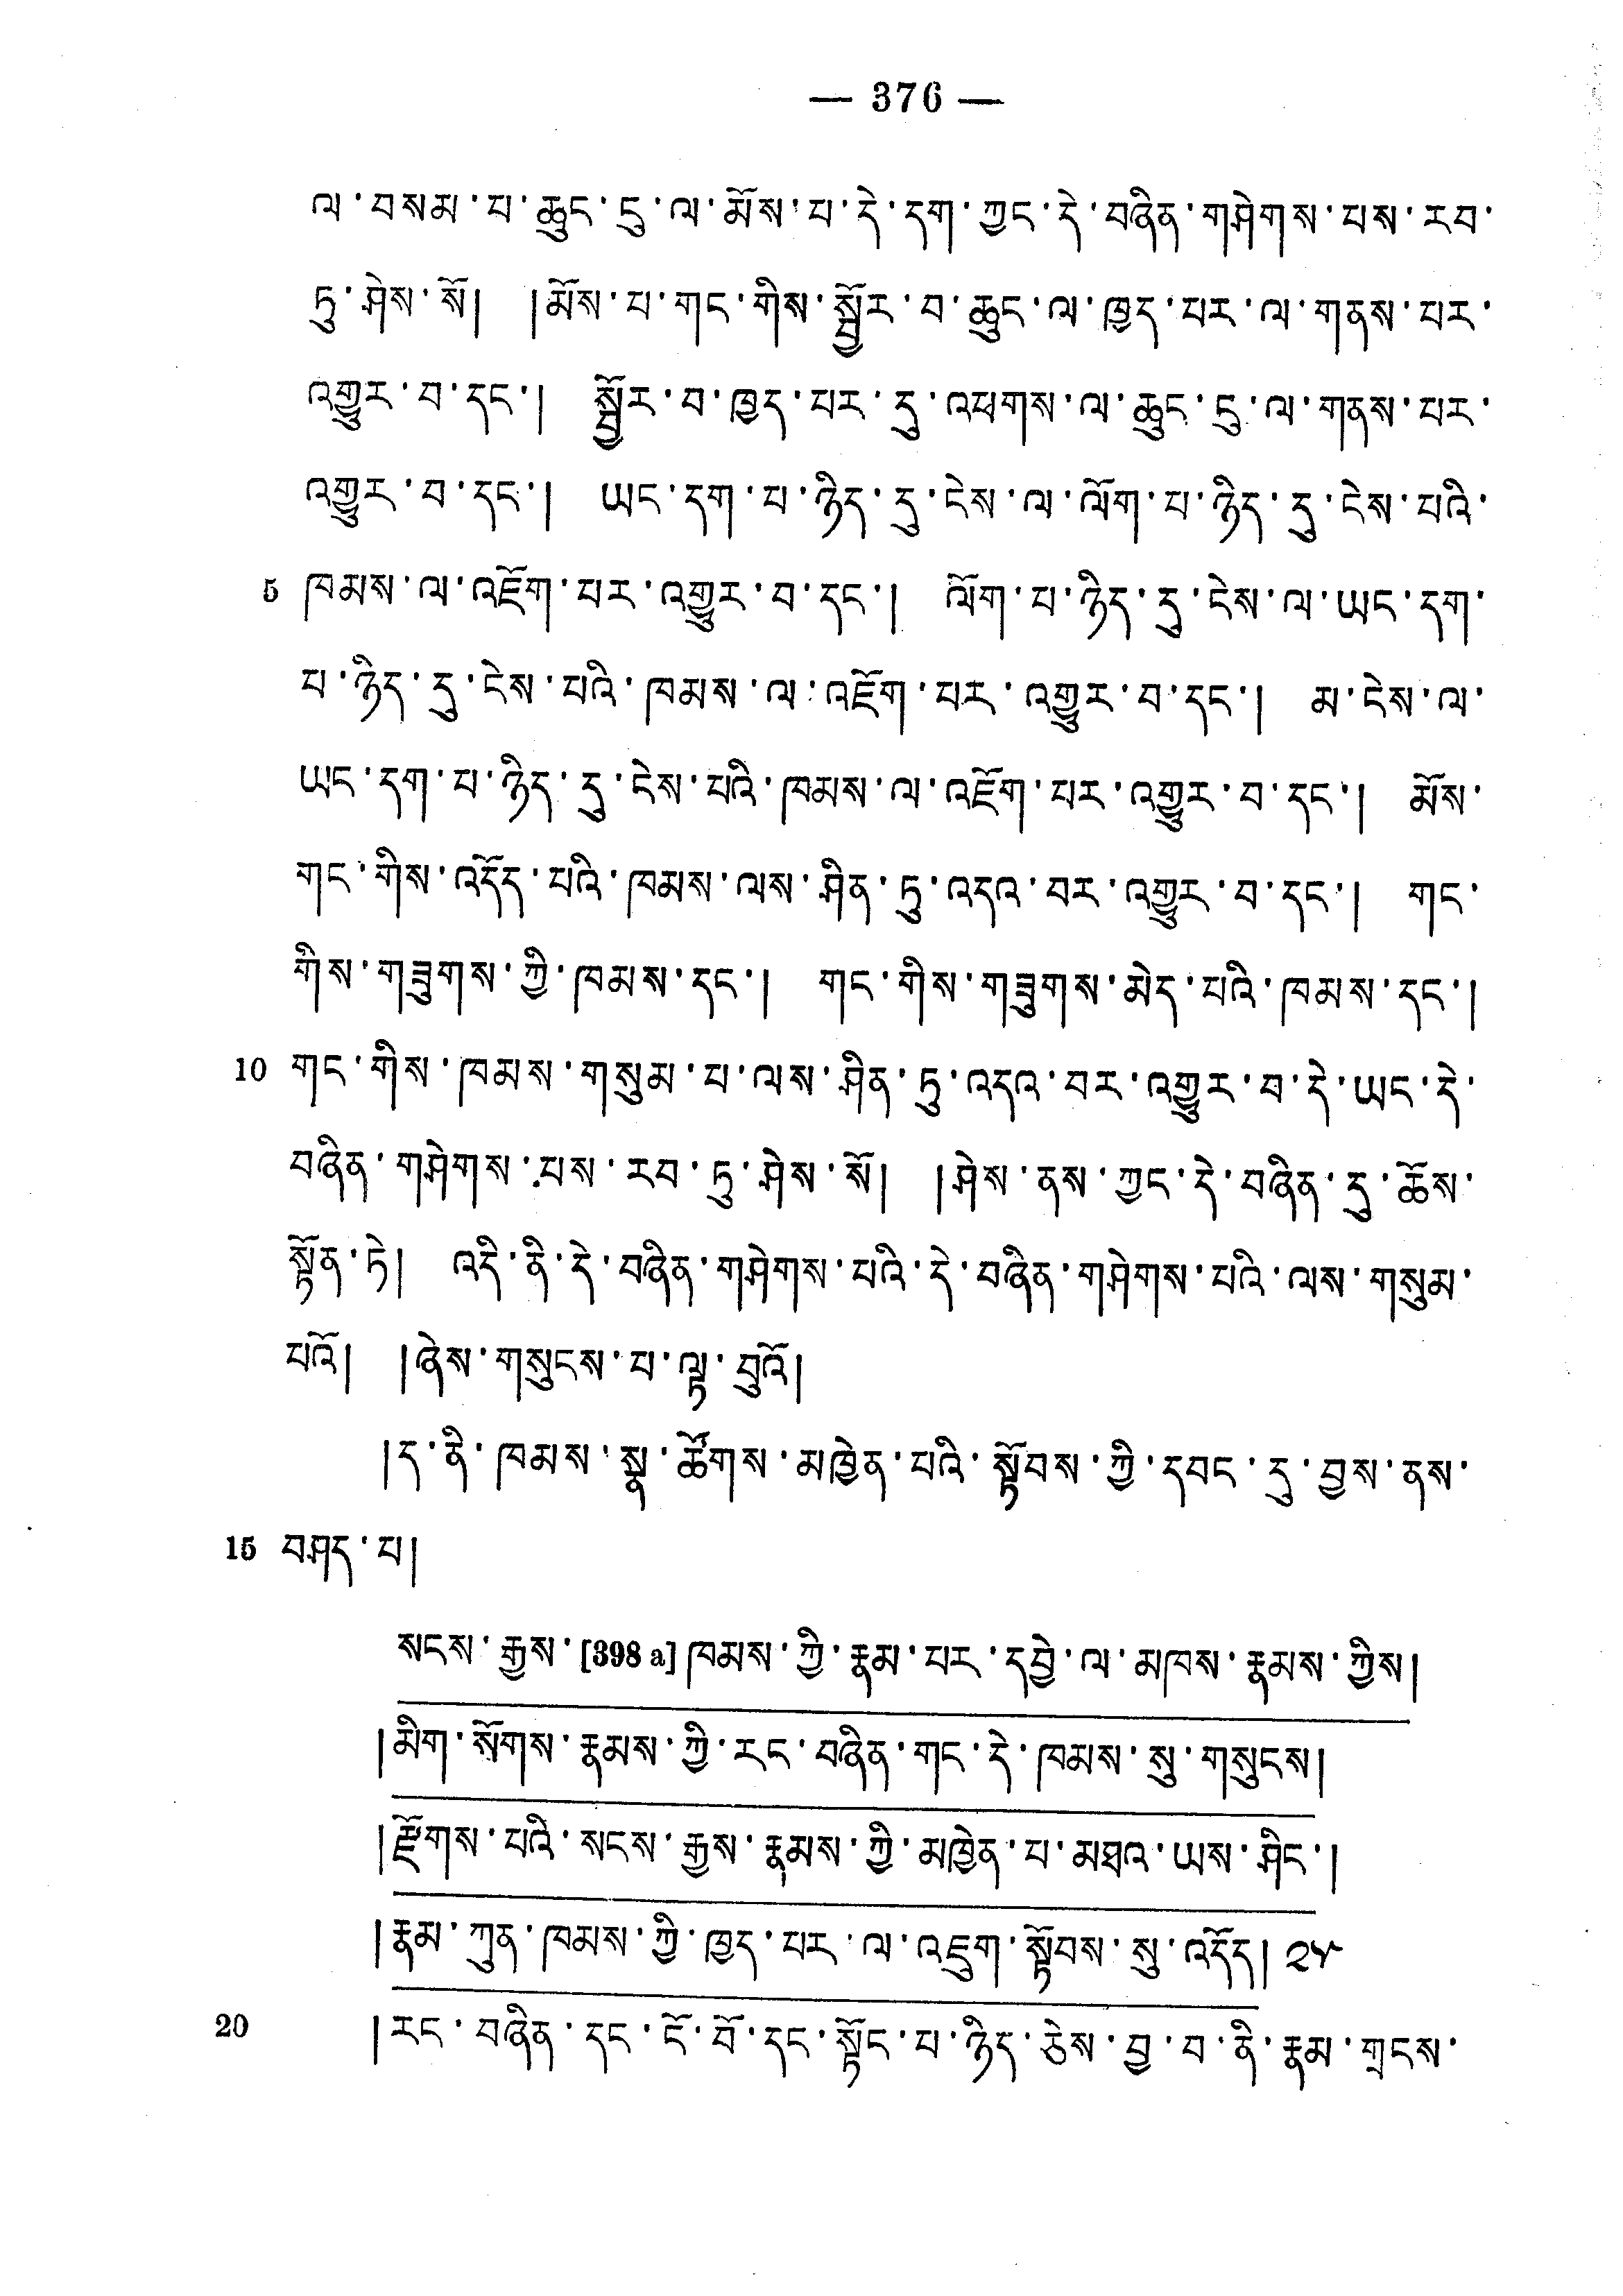 — 376 —
ལ་བསམ་པ་ཆུང་ངུ་ལ་མོས་པ་དེ་དག་ཀྱང་དེ་བཞིན་གཤེགས་པས་རབ་
ཏུ་ཤེས་སོ། །མོས་པ་གང་གིས་སྦྱོར་བ་ཆུང་ལ་ཁྱད་པར་ལ་གནས་པར་
འགྱུར་བ་དང་། སྦྱོར་བ་ཁྱད་པར་དུ་འཕགས་ལ་ཆུང་ངུ་ལ་གནས་པར་
འགྱུར་བ་དང་། ཡང་དག་པ་ཉིད་དུ་ངེས་ལ་ལོག་པ་ཉིད་དུ་ངེས་པའི་
5 ཁམས་ལ་འཇོག་པར་འགྱུར་བ་དང་། ལོག་པ་ཉིད་དུ་ངེས་ལ་ཡང་དག་
པ་ཉིད་དུ་ངེས་པའི་ཁམས་ལ་འཇོག་པར་འགྱུར་བ་དང་། མ་ངེས་ལ་
ཡང་དག་པ་ཉིད་དུ་ངེས་པའི་ཁམས་ལ་འཇོག་པར་འགྱུར་བ་དང་། མོས་
གང་གིས་འདོད་པའི་ཁམས་ལས་ཤིན་ཏུ་འདའ་བར་འགྱུར་བ་དང་། གང་
གིས་གཟུགས་ཀྱི་ཁམས་དང་། གང་གིས་གཟུགས་མེད་པའི་ཁམས་དང་།
10 གང་གིས་ཁམས་གསུམ་པ་ལས་ཤིན་ཏུ་འདའ་བར་འགྱུར་བ་དེ་ཡང་དེ་
བཞིན་གཤེགས་པས་རབ་ཏུ་ཤེས་སོ། །ཤེས་ནས་ཀྱང་དེ་བཞིན་དུ་ཆོས་
སྟོན་ཏེ། འདི་ནི་དེ་བཞིན་གཤེགས་པའི་དེ་བཞིན་གཤེགས་པའི་ལས་གསུམ་
པའོ། །ཞེས་གསུངས་པ་ལྟ་བུའོ།
།ད་ནི་ཁམས་སྣ་ཚོགས་མཁྱེན་པའི་སྟོབས་ཀྱི་དབང་དུ་བྱས་ནས་
15 བཤད་པ།
སངས་རྒྱས་[398 a]ཁམས་ཀྱི་རྣམ་པར་དབྱེ་ལ་མཁས་རྣམས་ཀྱིས།
།མིག་སོགས་རྣམས་ཀྱི་རང་བཞིན་གང་དེ་ཁམས་སུ་གསུངས།
།རྫོགས་པའི་སངས་རྒྱས་རྣམས་ཀྱི་མཁྱེན་པ་མཐའ་ཡས་ཤིང་།
།རྣམ་ཀུན་ཁམས་ཀྱི་ཁྱད་པར་ལ་འཇུག་སྟོབས་སུ་འདོད། ༢༥
20 །རང་བཞིན་དང་ངོ་བོ་དང་སྟོང་པ་ཉིད་ཅེས་བྱ་བ་ནི་རྣམ་གྲངས་